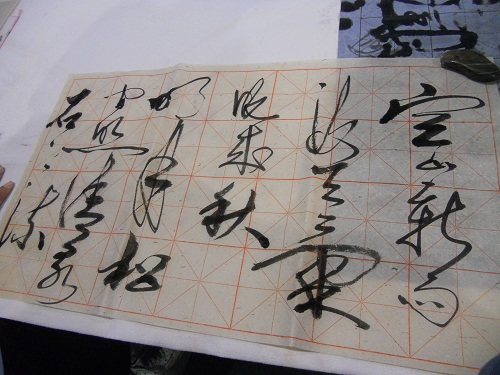 空山新雨
後天氣
晚來秋
明月松
間照清泉
石上流